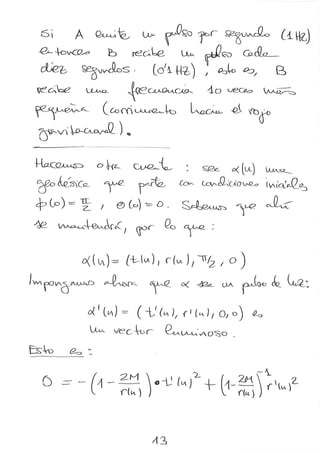 Si A emite un pulso por segundo (1 Hz)
entonces B recibe un pulso cada
diez segundos. (0'1 Hz), esto es, B
recibe una frecuencia 10 veces más
pequeña (corrimiento hacia el rojo
gravitacional).
Hacemos otra cuenta : sea α(u) una
geodésica que parte con condiciones iniciales
ϕ(0) = π/2 , θ(0) = 0. Sabemos que ahí
se mantendrá, por lo que :
α(u) = (t(u), r(u), π/2, 0)
Impongamos ahora que α sea un pulso de luz:
α'(u) = (t'(u), r'(u), 0, 0) es
un vector luminoso.
Esto es :
0 = - (1 - 2M/r(u)) • t'(u)² + (1 - 2M/r(u))⁻¹ r'(u)²
13